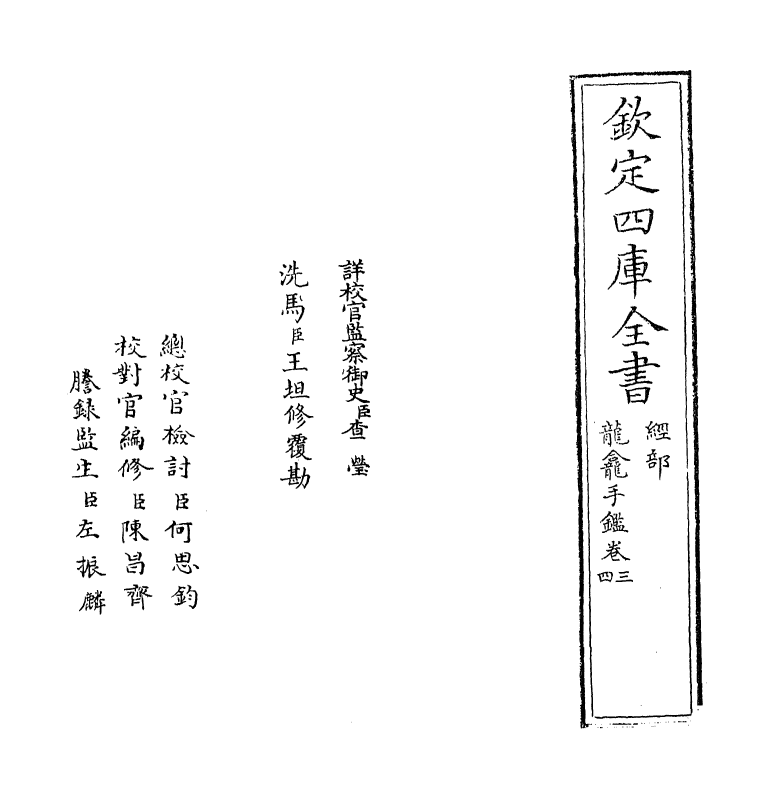 欽定四庫全書
經部
龍龕手鑑卷三四
詳校官監察御史臣查瑩
洗馬臣王坦修覆勘
總校官檢討臣何思鈞
校對官編修臣陳昌齊
謄錄監生臣左振麟